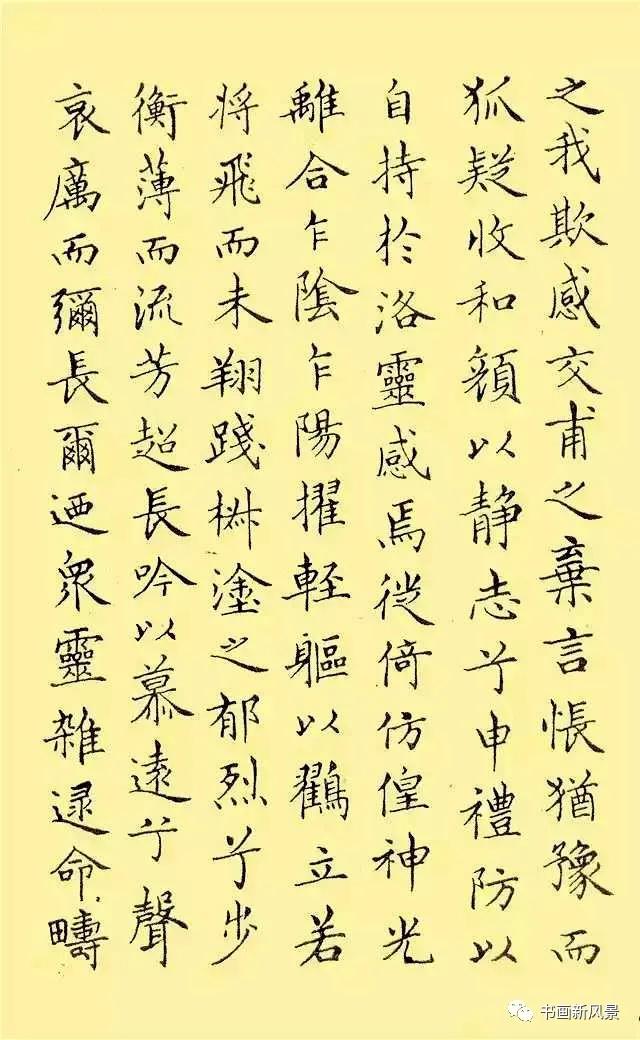 之我欺感交甫之棄言悵猶豫而
狐疑收和顏以静志兮申禮防以
自持於洛靈感焉徙倚仿偟神光
離合乍陰乍陽擢輕軀以鶴立若
将飛而未翔踐椒塗之郁烈兮步
衡薄而流芳超長吟以慕遠兮聲
哀厲而彌長爾迺衆靈雜遝命疇
书画新风景